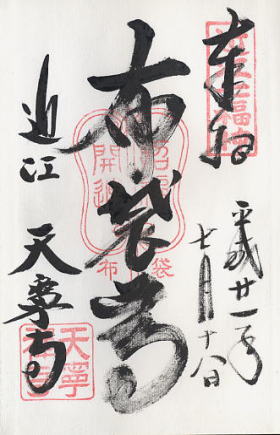 奉拝
平成廿一年
七月十八日
布袋尊
開運
布袋
近江
天寧寺
天寧